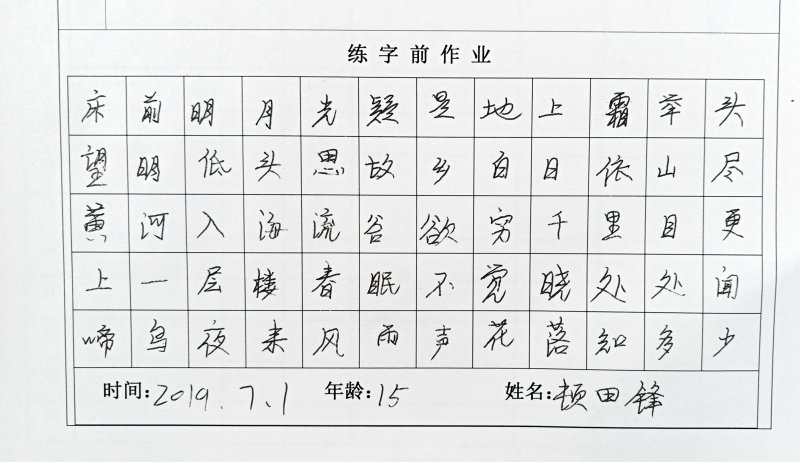 练字前作业
床前明月光疑是地上霜举头
望明低头思故乡白日依山尽
黄河入海流谷欲穷千里目更
上一层楼春眠不觉晓处处闻
啼鸟夜来风雨声花落知多少
时间:2019.7.1 年龄:15 姓名:顿田锋